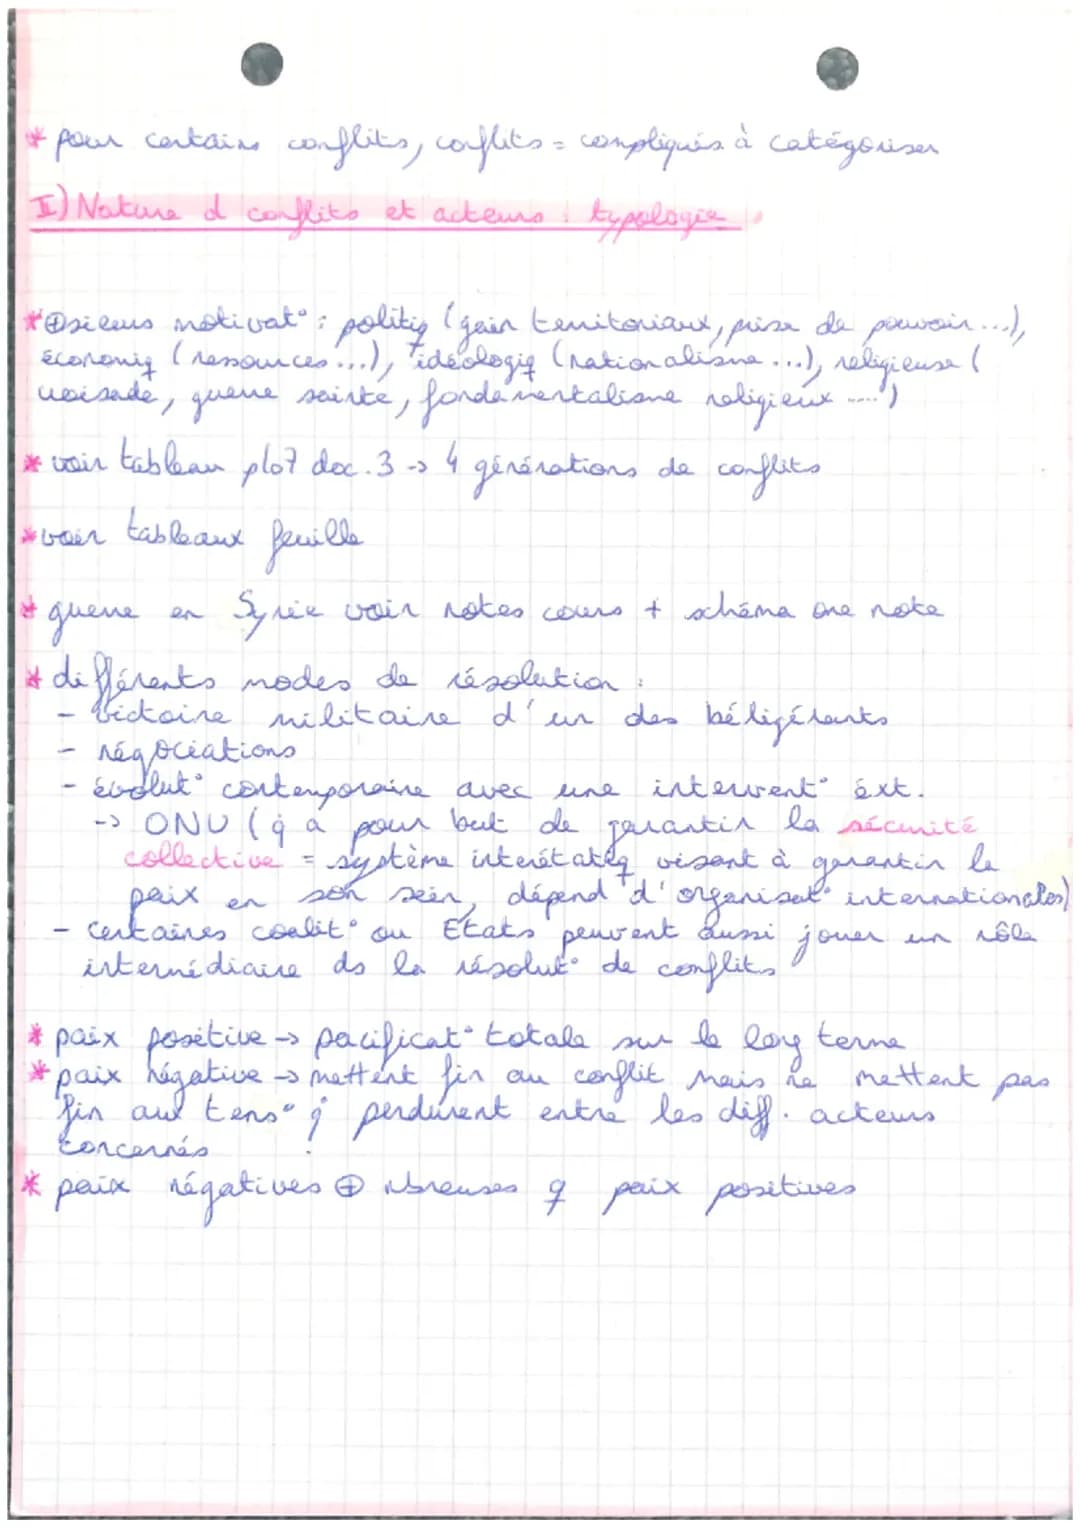 * pour certains conflits, conflits = compliqués à catégoriser
II) Nature d conflits et acteurs : typologie
* ⊕sieurs motivat° : politiq (gain territoriaux, prise de pouvoir ...),
économiq (ressources ...), idéologiq (nationalisme ...), religieuse (
croisade, guerre sainte, fondamentalisme religieux ....)
* voir tableau p107 doc.3 -> 4 générations de conflits
* voir tableaux feuille
* guerre en Syrie voir notes cours + schéma one note
* différents modes de résolution :
- victoire militaire d'un des béligérants
- négociations
- évolut° contemporaine avec une intervent° éxt.
-> ONU (q a pour but de garantir la sécurité
collective = système interétatiq visant à garantir la
paix en son sein, dépend d'organisat° internationales)
- certaines coalit° ou Etats peuvent aussi jouer un rôle
intermédiaire ds la résolut° de conflits
* paix positive -> pacificat° totale sur le long terme
* paix négative -> mettent fin au conflit mais ne mettent pas
fin aux tens° q perdurent entre les diff. acteurs
concernés
* paix négatives ⊕ nbreuses q paix positives